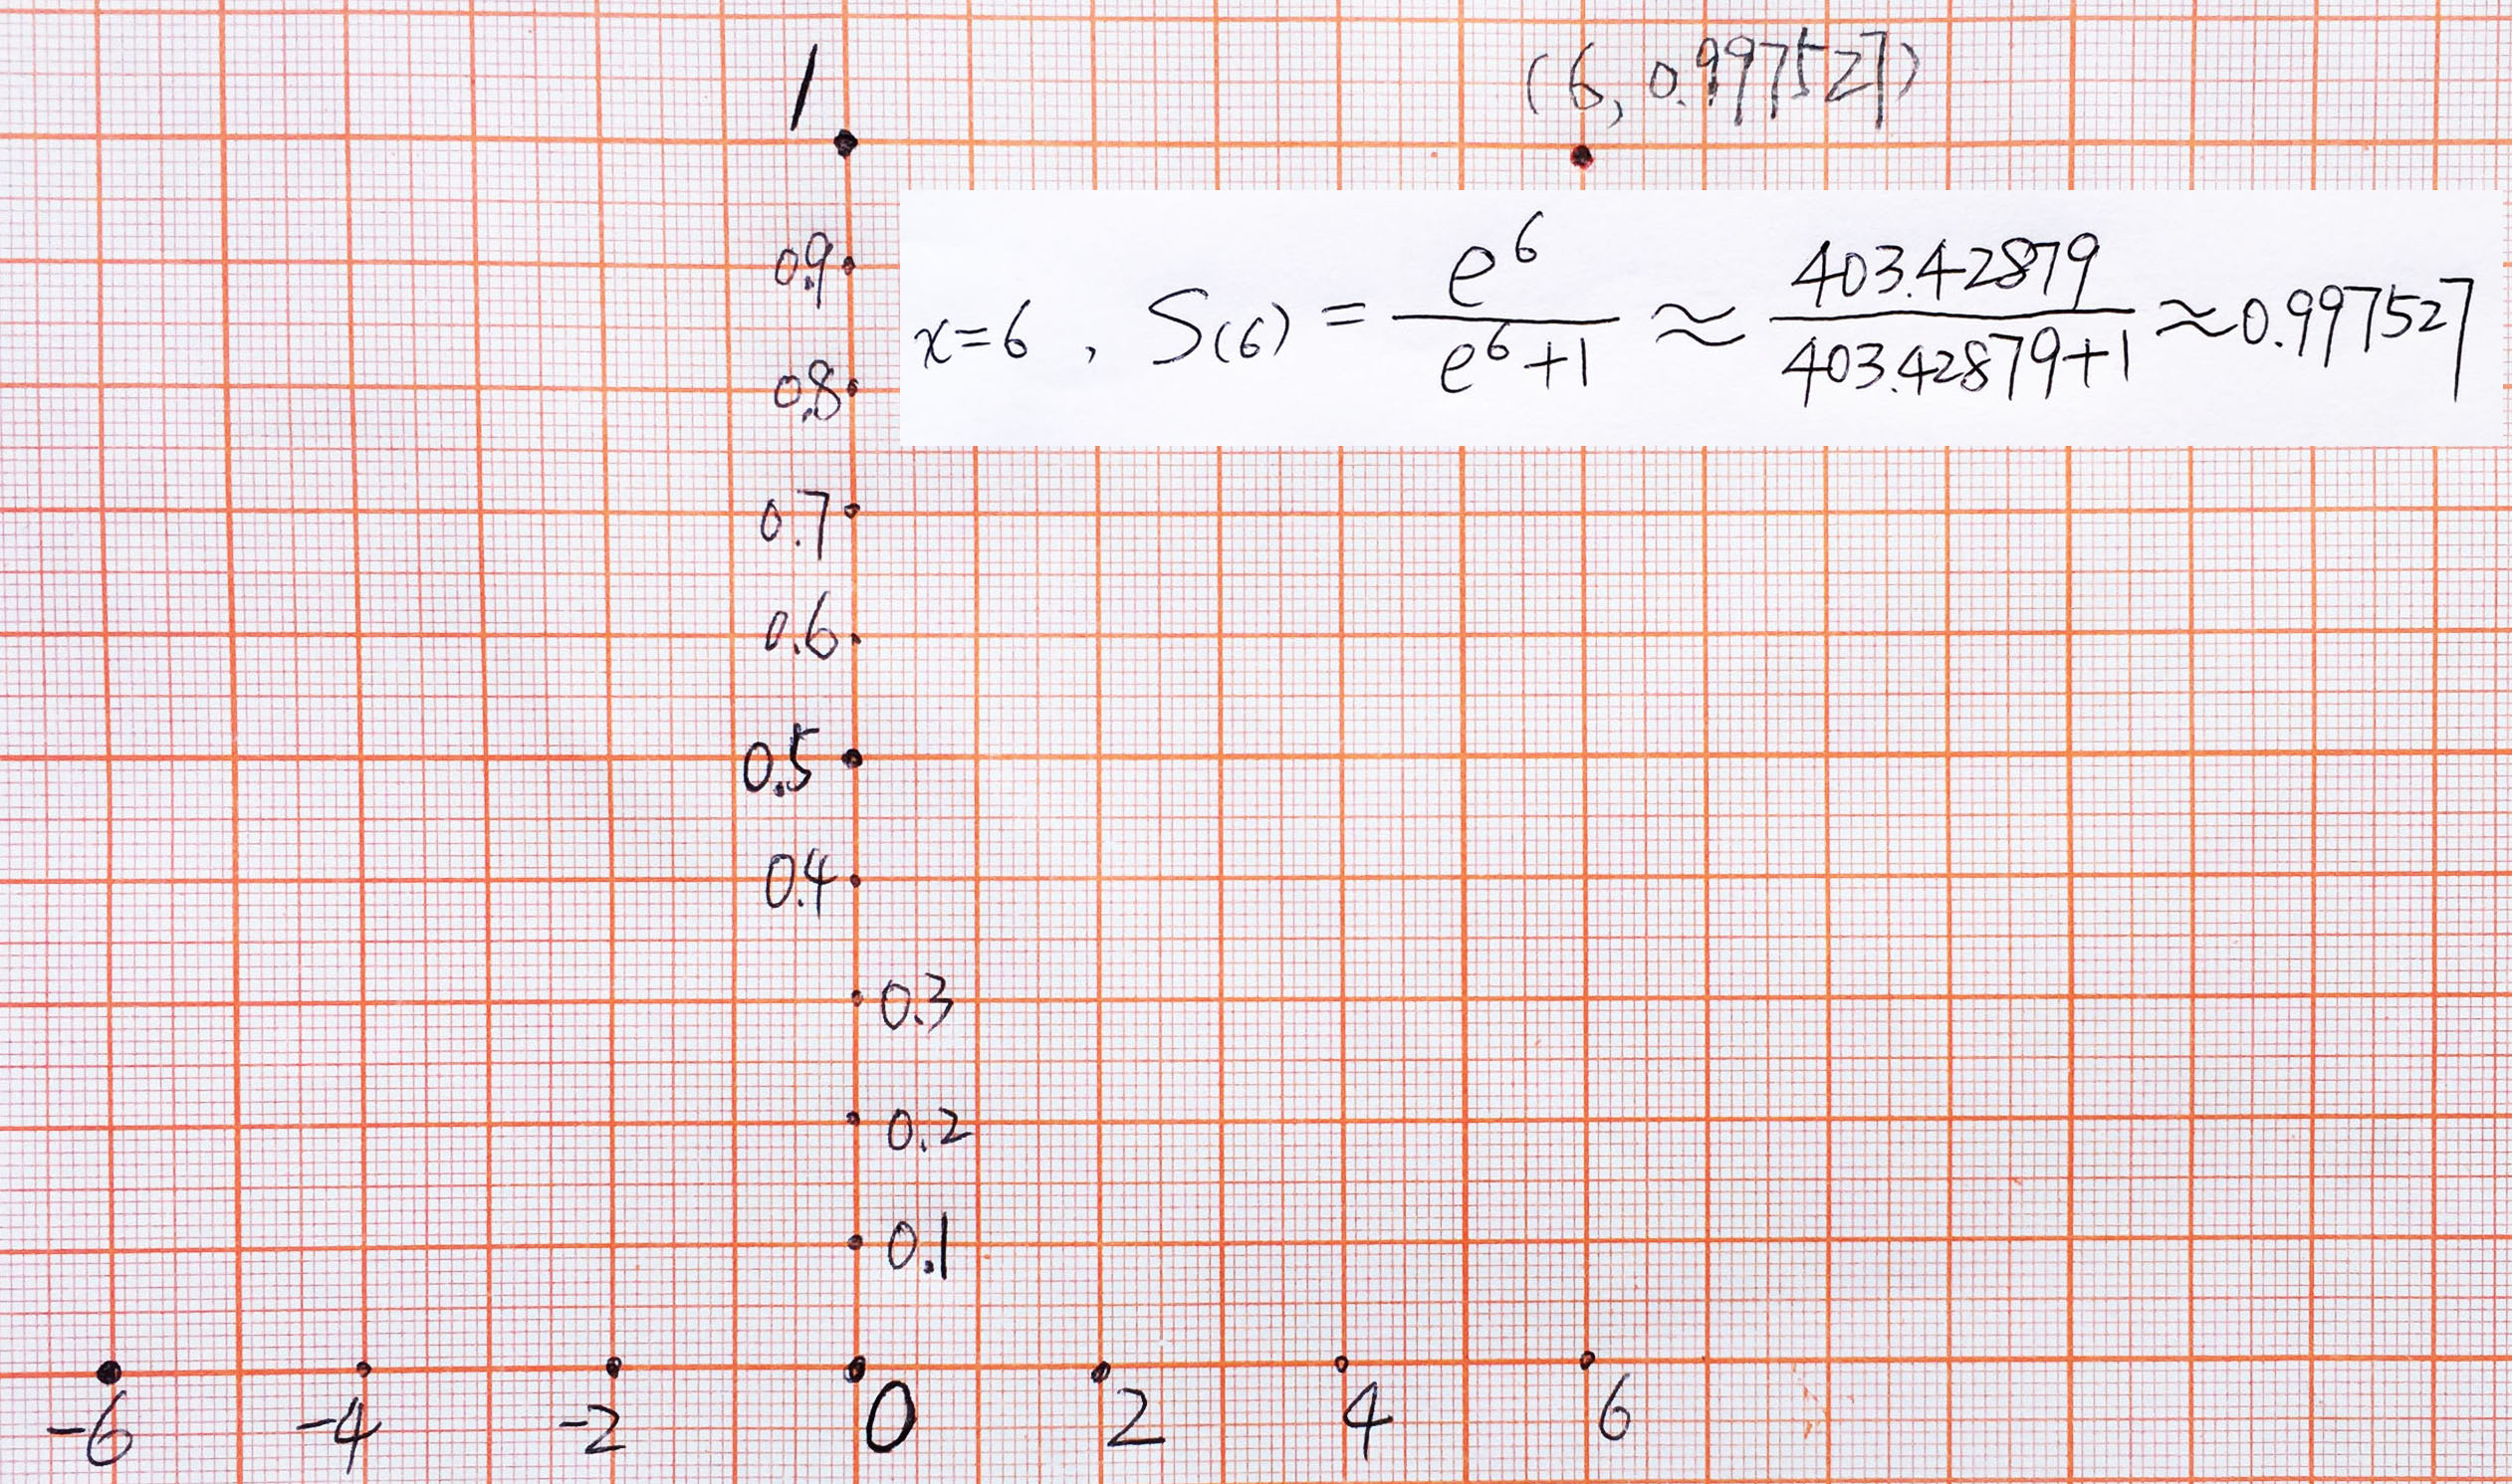 1
(6, 0.997527)
0.9
x=6 , S(6) = e^6/(e^6+1) ≈ 403.42879/(403.42879+1) ≈ 0.997527
0.8
0.7
0.6
0.5
0.4
0.3
0.2
0.1
-6 -4 -2 0 2 4 6